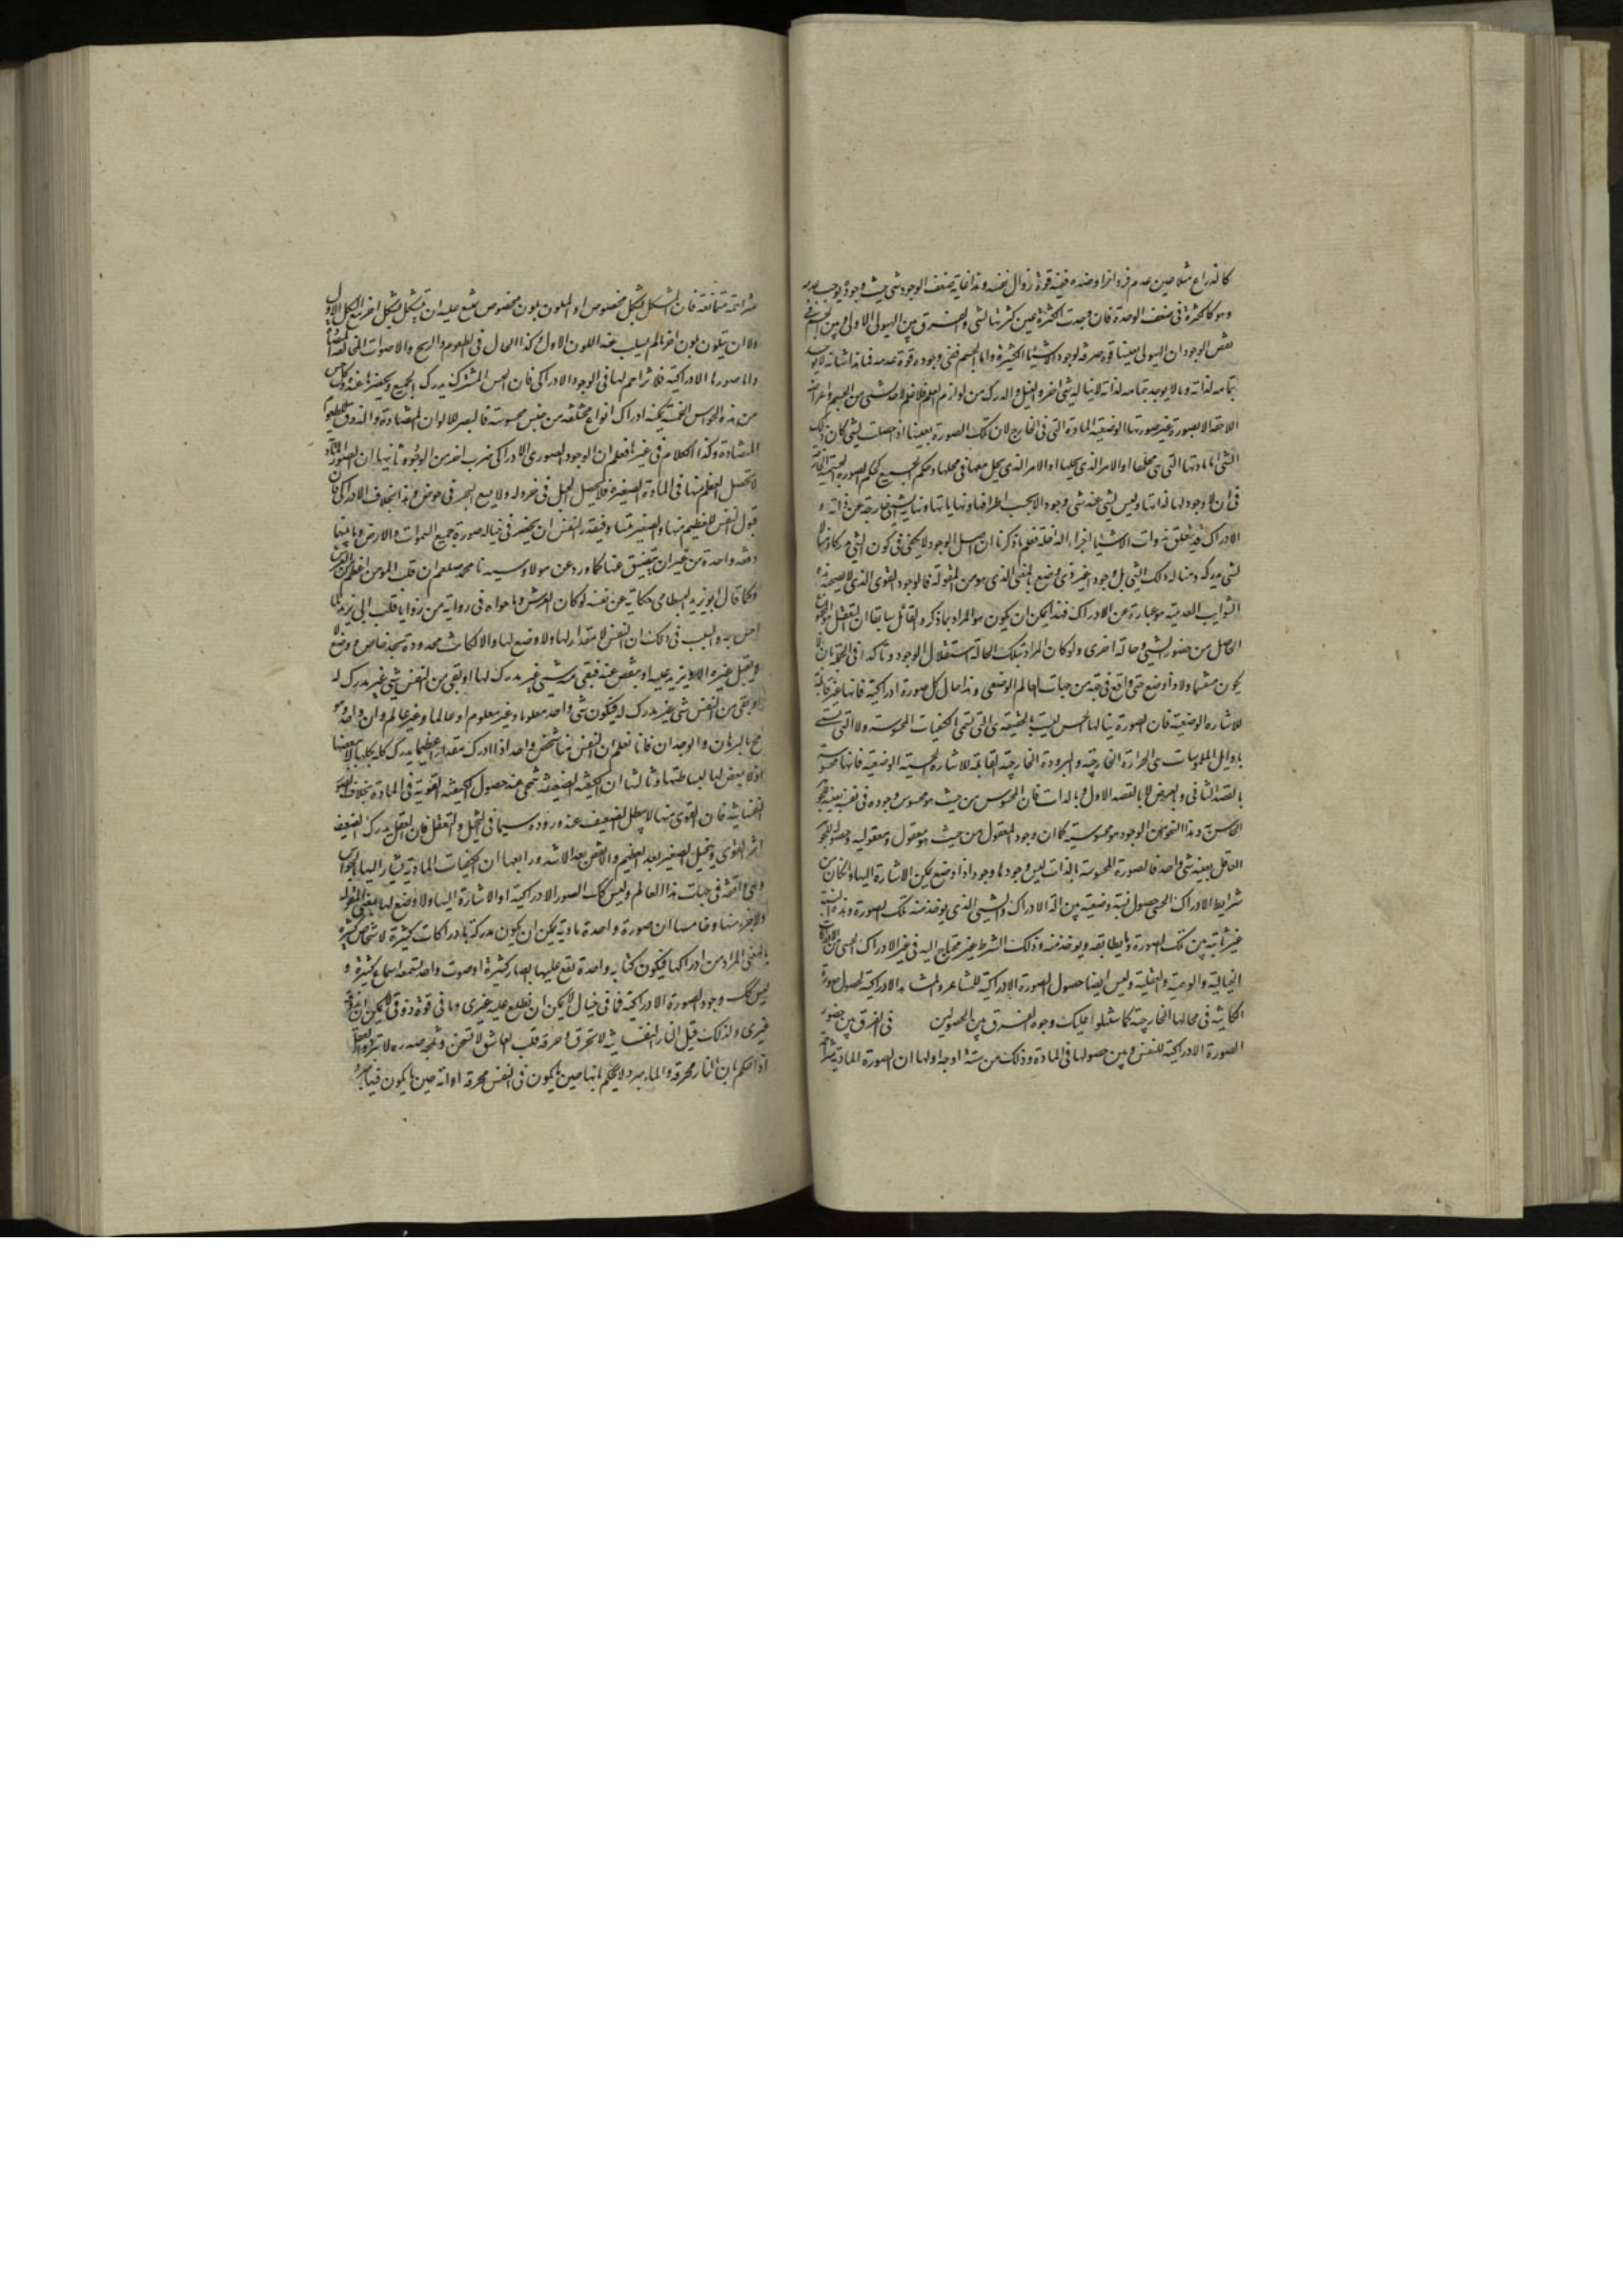 كالذراع مثلا حين عدم فرد اخر او ضده ففيه قوة زوال نفسه وهذا غاية ضعف الوجود شئ بحيث وجوده يوجب عدمه
وهو كالكثرة فى ضعف الوحدة فان وحدت الكثرة عين كثرتها لشئ والفرق بين الهيولى الاولى وبين الجسم فى
نقص الوجود ان الهيولى بعينها قوة صرفة لوجود الاشياء الكثيرة واما الجسم ففى وجوده قوة عدمه فما هذا شانه لا يوجد
بتمامه لذاته وما لا يوجد بتمامه لذاته لا يناله شئ اخر والنيل والدرك من لوازم العلم فلا علم لاحد بشئ من الجسم واعراضه
اللاحقة الا بصورة غير صورتها الوضعية المادية التى فى الخارج لان تلك الصورة بعينها اذا حصلت لشئ كان ذلك
الشئ اما مادتها التى هى محلها او الامر الذى يحلها او الامر الذى يحل معها فى محلها وحكم الجميع كحكم الصورة الجسمية الخارجية
فى ان لا وجود لها لذاتها وليس لشئ عنه شئ وجود الا بحسب اطرافها ونهاياتها ونهاية الشئ خارجة عن ذاته و
الادراك قد يتعلق بذوات الاشياء اجزاء الداخلة فعلم بما ذكرنا ان اصل الوجود لا يكفى فى كون الشئ مدركا ومنالا
لشئ يدركه ويناله ذلك الشئ بل وجود غير ذى وضع بالمعنى الذى هو من المقولة فالوجود القوى الذى لا يصحبه
الشوايب العدمية هو عبارة عن الادراك فهذا يمكن ان يكون هو المراد بما ذكره القائل سابقا ان التعقل هو
الحاصل من حضور الشئ وحالة اخرى ولو كان المراد بتلك الحالة استقلال الوجود وتاكده فى الجملة بان لا
يكون منقسما ولا ذا وضع حتى واقع فى جهة من جهات العالم الوضعى وهذا حال كل صورة ادراكية فانها غير قابلة
للاشارة الوضعية فان الصورة ينالها الحس ليست بالحقيقة هى التى تسمى الكيفيات المحسوسة ولا التى تسمى
باوايل الملموسات هى الحرارة الخارجية والبرودة الخارجية القابلة للاشارة الحسية الوضعية فانها محسوسة
بالقصد الثانى وبالعرض لا بالقصد الاول وبالذات فان المحسوس من حيث هو محسوس وجوده فى نفسه بعينه
الحاس وهذا النحو من الوجود هو محسوسيته كما ان وجود المعقول من حيث هو معقول ومعقوليته وحصوله
العاقل بعينه شئ واحد فالصورة المحسوسة بالذات ليس وجودها وجود اذا وضع يمكن الاشارة اليها وان كان من
شرايط الادراك الحسى حصول نسبة وضعية بين آلة الادراك والشئ الذى يوخذ منه تلك الصورة وهذه النسبة
غير ثابتة بين تلك الصورة وما يطابقه ويوخذ منه وذلك الشرط غير محتاج اليه فى غير الادراك الحسى من الادراكات
الخيالية والوهمية والعقلية وليس ايضا حصول الصورة الادراكية للمشاعر والمشاهد الادراكية كحصول صورة
الكاينة فى محالها الخارجية كما سنتلوا عليك وجوه الفرق بين الحصولين فى الفرق بين حضور
الصورة الادراكية للنفس وبين حصولها فى المادة وذلك من ستة اوجه اولها ان الصورة المادية
متزاحمة متمانعة فان المشكل بشكل مخصوص او الملون بلون مخصوص يمتنع عليه ان يتشكل بشكل اخر مع الشكل الاول
ولا ان يتلون بلون اخر ما لم يسلب عنه اللون الاول وكذا الحال فى الطعوم والريح والاصوات المخالفة المتضادة
واما صورها الادراكية فلا تزاحم لها فى الوجود الادراكى فان الحس المشترك يدرك الجميع ويحضرها عنده وكل حاس
من هذه الحواس الخمسة يمكنه ادراك انواع مختلفة من جنس محسوسه فالبصر للالوان المتضادة والذوق للطعوم
المتضادة وكذا الكلام فى غيرها فعلم ان الوجود الصورى الادراكى ضرب اخر من الوجود ثانيها ان الصور المادية
لا تحصل العظيم منها فى المادة الصغيرة فلا يحصل الجبل فى خردلة ولا يسع البحر فى حوض وهذا بخلاف الادراكى فان
قبول النفس للعظيم منها والصغير متساو فيقدر النفس ان يحضر فى خياله صورة جميع السموات والارض وما بينها
دفعة واحدة من غير ان يتضيق عنها كما ورد عن مولانا وسيدنا محمد صلعم ان قلب المومن اعظم من العرش
وكما قال ابو يزيد البسطامى حكاية عن نفسه لو كان العرش وما حواه فى زاوية من زوايا قلب ابى يزيد لما
احس به والسبب فى ذلك ان النفس لا مقدار لها ولا وضع لها والا لكانت محدودة بحد خاص ووضع
لا يقبل غيره الا ويزيد عليه او ينقص عنه فبقى منه شئ غير مدرك لها او بقى من النفس شئ غير مدرك له
او بقى من النفس شئ غير مدرك له فيكون شئ واحد معلوما وغير معلوم او عالما وغير عالم وان واحد وهو
مح بالبرهان والوجدان فانا نعلم ان النفس منا شخص واحد اذا ادرك مقدارا عظيما يدرك كله بكلها لا ببعضها
اذ لا بعض لها لبساطتها وثالثها ان الكيفية الضعيفة تنمحى عند حصول الكيفية القوية فى المادة بخلاف الصور
النفسانية فان القوى منها لا يبطل الضعيف عند وروده سيما فى التخيل والتعقل فان العقل يدرك الضعيف
اثر القوى ويتخيل الصغير بعد العظيم والانقص بعد الاشد ورابعها ان الكيفيات المادية يشار اليها بالحواس
وهى واقعة فى جهات هذا العالم وليس كك الصور الادراكية اذ لا اشارة اليها ولا وضع لها بمعنى المقولة
ولا جزء منها وخامسها ان صورة واحدة مادية يمكن ان يكون مدركة بادراكات كثيرة لاشخاص كثيرة
بالمعنى المراد من ادراكها فيكون كتابة واحدة يقع عليها ابصار كثيرة او صوت واحد يستمعه اسماع كثيرة و
ليس كك وجود الصورة الادراكية فما فى خيالى لا يمكن ان يطلع عليه غيرى وما فى قوة ذوقى لا يمكن ان يذوقه
غيرى ولذلك قيل ان النار النفسانية لا تحرق او حرقة قلب العاشق لا تسخن وثلجة صدره لا تبرد
اذا حكم بان النار محرقة والماء مبرد لا يحكم بانها حين ما يكون فى النفس محرقة او انه حين ما يكون فيها